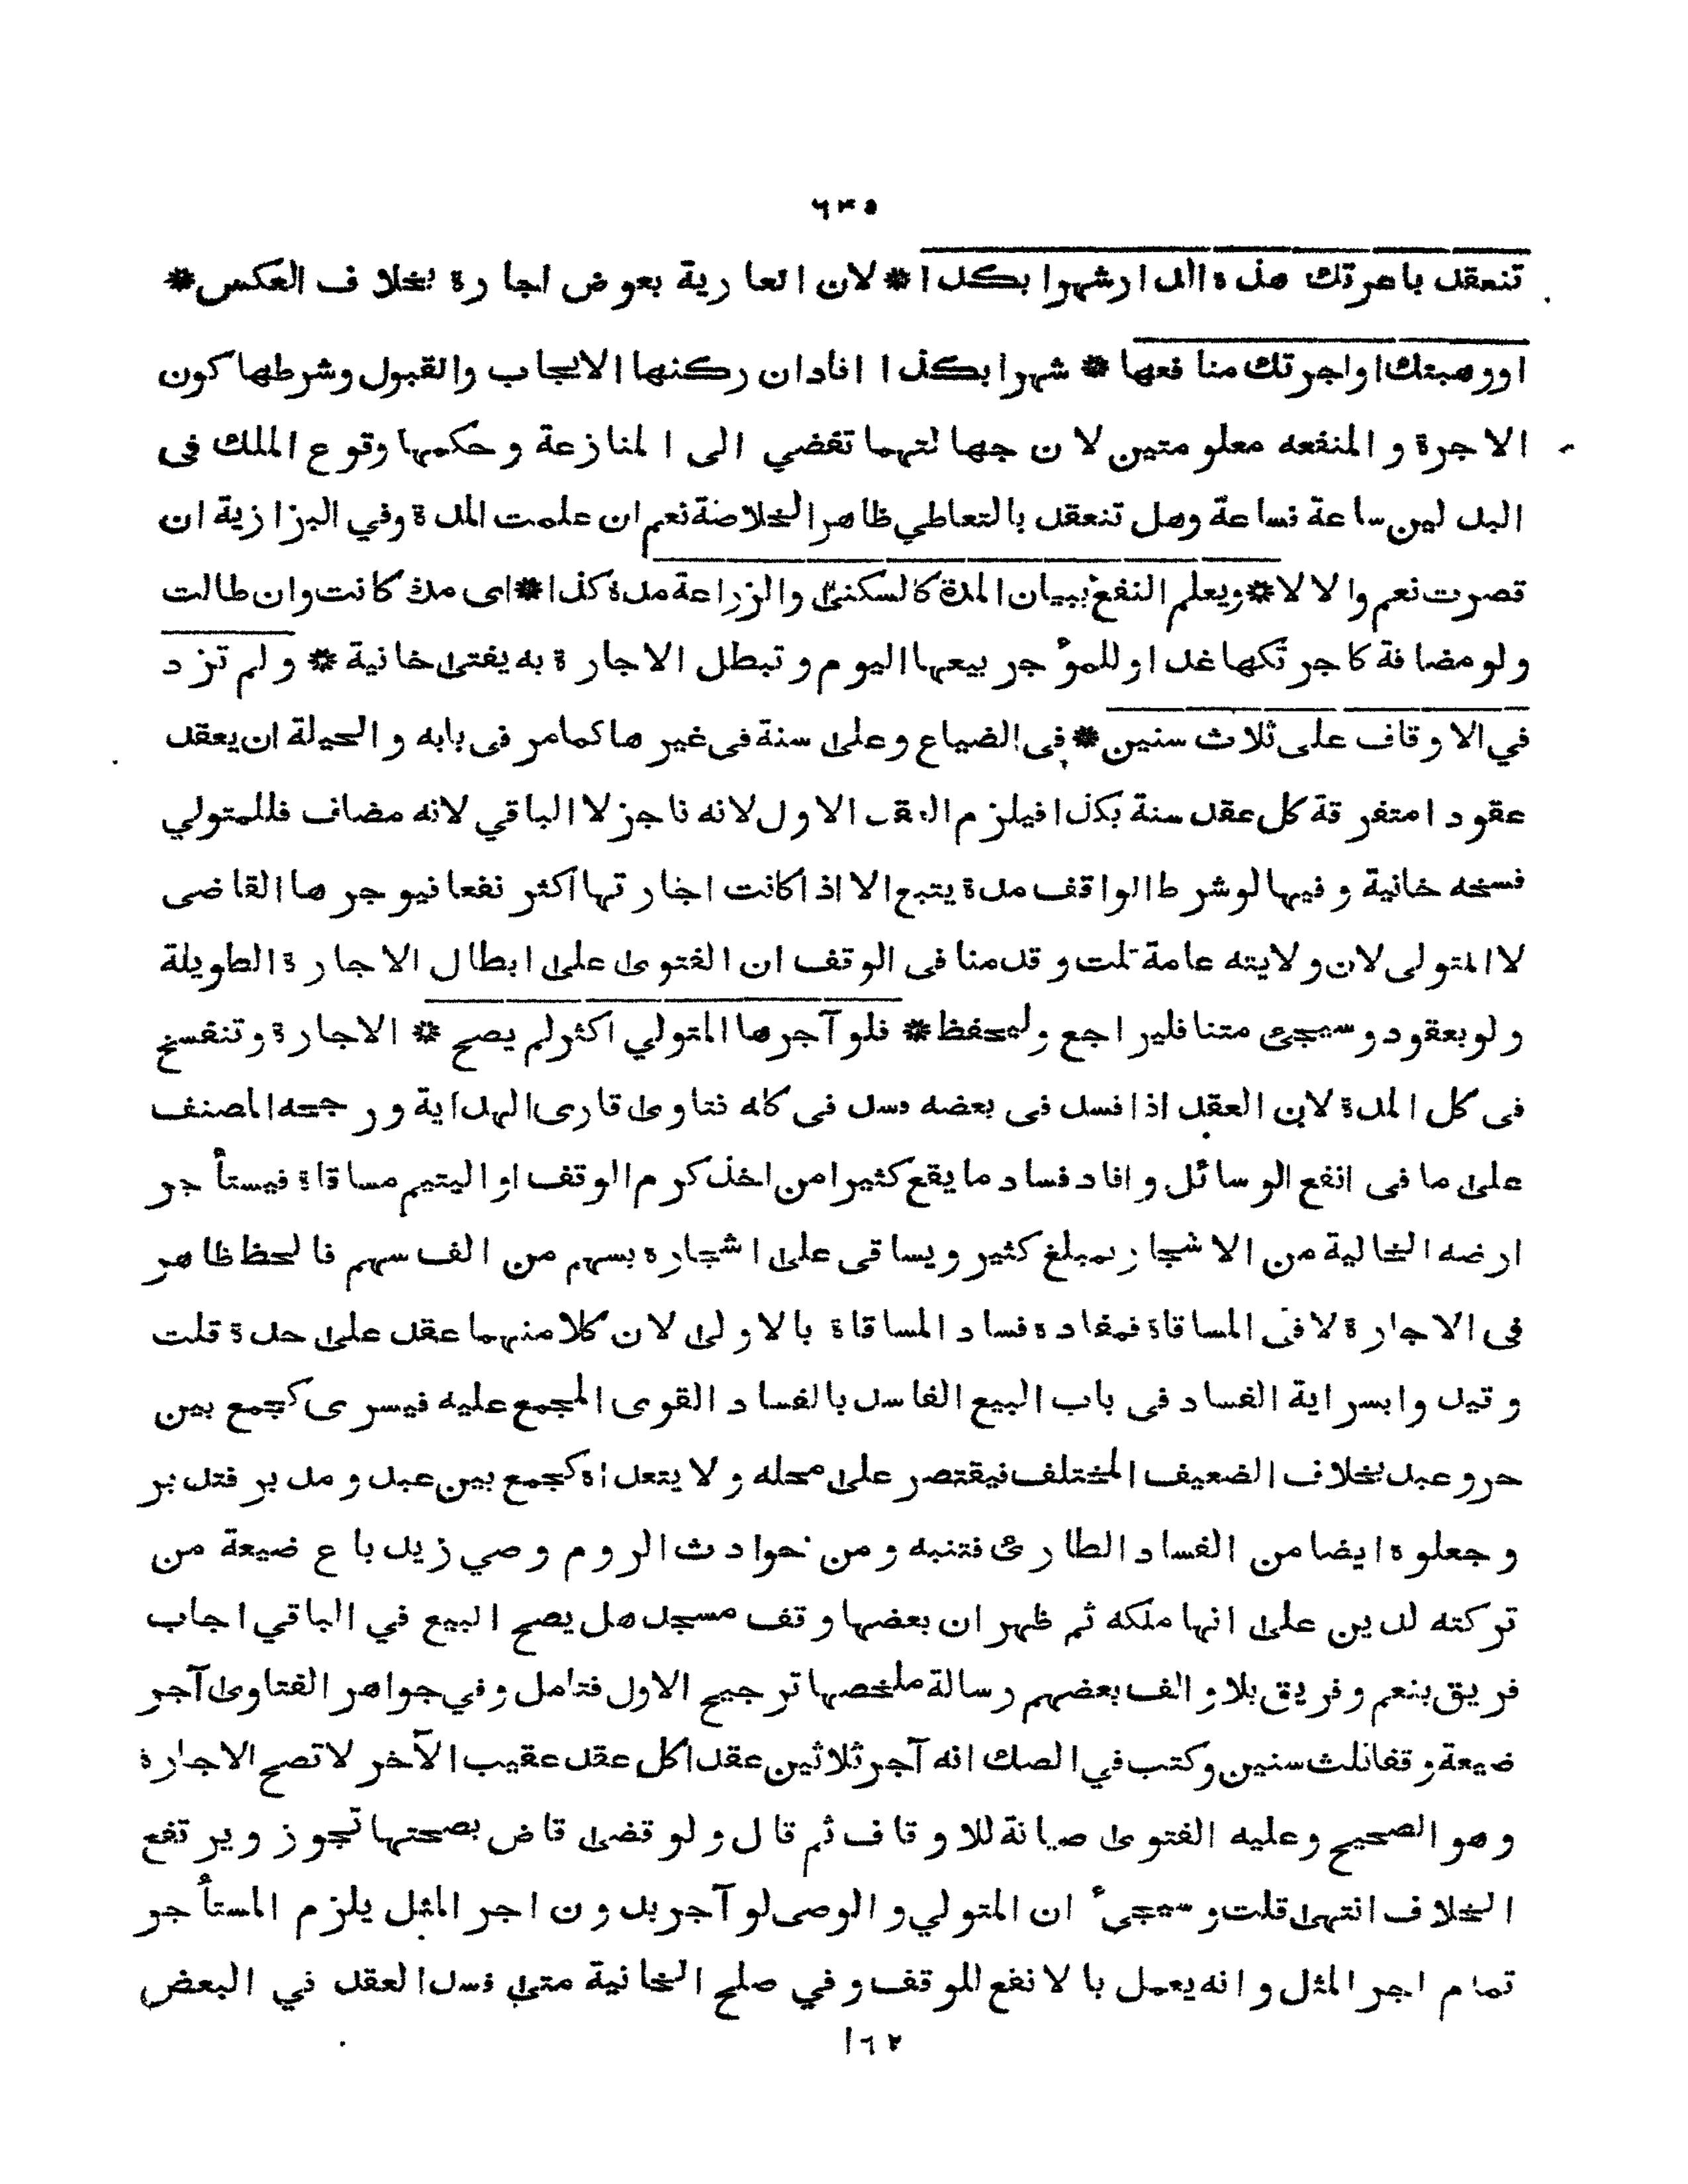 ٦٣٥
تنعقد باعرتك هذه الدار شهرا بكذا * لان العارية بعوض اجارة بخلاف العكس *
او وهبتك او اجرتك منافعها * شهرا بكذا افاد ان ركنها الايجاب والقبول وشرطها كون
الاجرة والمنفعه معلومتين لان جهالتهما تفضي الى المنازعة وحكمها وقوع الملك فى
البدلين ساعة فساعة وهل تنعقد بالتعاطي ظاهر الخلاصة نعم ان علمت المدة وفي البزازية ان
قصرت نعم والا لا * ويعلم النفع ببيان المدة كالسكنى والزراعة مدة كذا * اى مدة كانت وان طالت
ولو مضافة كاجرتكها غدا وللمؤجر بيعها اليوم وتبطل الاجارة به يفتى خانية * ولم تزد
في الاوقاف على ثلاث سنين * فى الضياع وعلى سنة فى غيرها كما مر فى بابه والحيلة ان يعقد
عقودا متفرقة كل عقد سنة بكذا فيلزم العقد الاول لانه ناجز لا الباقي لانه مضاف فللمتولي
فسخه خانية وفيها لو شرط الواقف مدة يتبع الا اذا كانت اجارتها اكثر نفعا فيوجرها القاضى
لا المتولى لان ولايته عامة قلت وقدمنا فى الوقف ان الفتوى على ابطال الاجارة الطويلة
ولو بعقود وسيجئ متنا فليراجع وليحفظ * فلو آجرها المتولي اكثر لم يصح * الاجارة وتنفسخ
فى كل المدة لان العقد اذا فسد فى بعضه فسد فى كله فتاوى قارى الهداية ورجحه المصنف
على ما فى انفع الوسائل وافاد فساد ما يقع كثيرا من اخذ كرم الوقف او اليتيم مساقاة فيستأجر
ارضه الخالية من الاشجار بمبلغ كثير ويساقى على اشجاره بسهم من الف سهم فالحظ ظاهر
فى الاجارة لا فى المساقاة فمفاده فساد المساقاة بالاولى لان كلا منهما عقد على حدة قلت
وقيدوا بسراية الفساد فى باب البيع الفاسد بالفساد القوى المجمع عليه فيسرى كجمع بين
حر وعبد بخلاف الضعيف المختلف فيقتصر على محله ولا يتعداه كجمع بين عبد ومدبر فتدبر
وجعلوه ايضا من الفساد الطارئ فتنبه ومن حوادث الروم وصي زيد باع ضيعة من
تركته لدين على انها ملكه ثم ظهر ان بعضها وقف مسجد هل يصح البيع في الباقي اجاب
فريق بنعم وفريق بلا والف بعضهم رسالة ملخصها ترجيح الاول فتامل وفي جواهر الفتاوى آجر
ضيعة وقفا ثلث سنين وكتب في الصك انه آجر ثلاثين عقدا كل عقد عقيب الآخر لا تصح الاجارة
وهو الصحيح وعليه الفتوى صيانة للاوقاف ثم قال ولو قضى قاض بصحتها تجوز ويرتفع
الخلاف انتهى قلت وسيجئ ان المتولي والوصى لو آجر بدون اجر المثل يلزم المستأجر
تمام اجر المثل وانه يعمل بالانفع للوقف وفي صلح الخانية متى فسد العقد في البعض
١٦٢